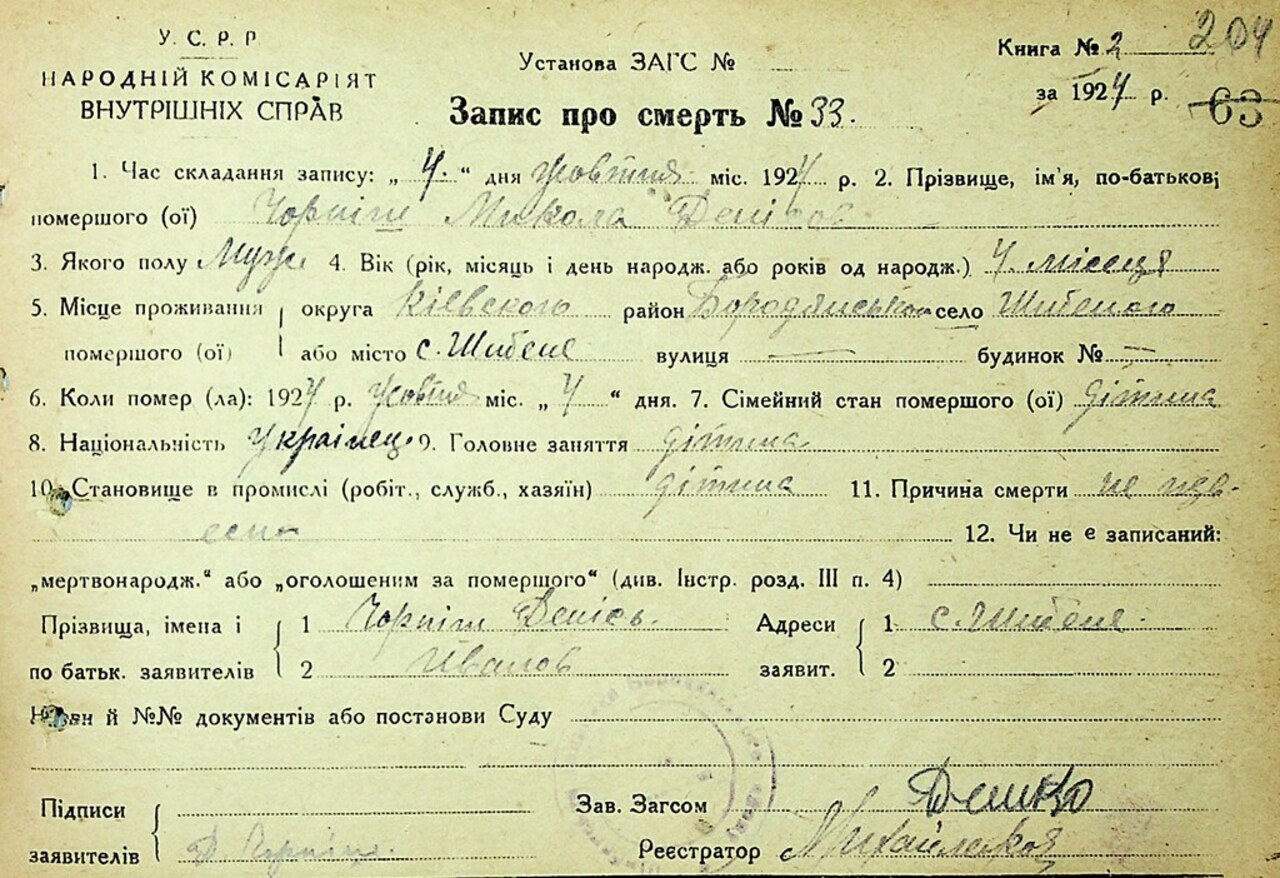 У. С. Р. Р
НАРОДНІЙ КОМІСАРІЯТ
ВНУТРІШНІХ СПРАВ
Установа ЗАГС №
Книга № 2 204
за 1924 р. 63
Запис про смерть № 33.
1. Час складання запису: „ 4. “ дня Жовтня міс. 1924 р. 2. Прізвище, ім'я, по-батькові
помершого (ої) Чорніш Микола Денісов
3. Якого полу Муж. 4. Вік (рік, місяць і день народж. або років од народж.) 4. місеця
5. Місце проживання округа Кіевского район Бородянського село Шибеного
помершого (ої) або місто с. Шибене вулиця — будинок № —
6. Коли помер (ла): 1924 р. Жовтня міс. „ 4 “ дня. 7. Сімейний стан помершого (ої) дітина
8. Національність Українец. 9. Головне заняття дітина
10. Становище в промислі (робіт., служб., хазяїн) дітина 11. Причина смерти не изв-
есно 12. Чи не є записаний:
„мертвонародж.“ або „оголошеним за помершого“ (див. Інстр. розд. III п. 4)
Прізвища, імена і 1 Чорніш Денісь. Адреси 1 с. Шибене.
по батьк. заявителів 2 Иванов заявит. 2
й №№ документів або постанови Суду
Підписи Зав. Загсом
заявителів Д. Чорніш. Реєстратор